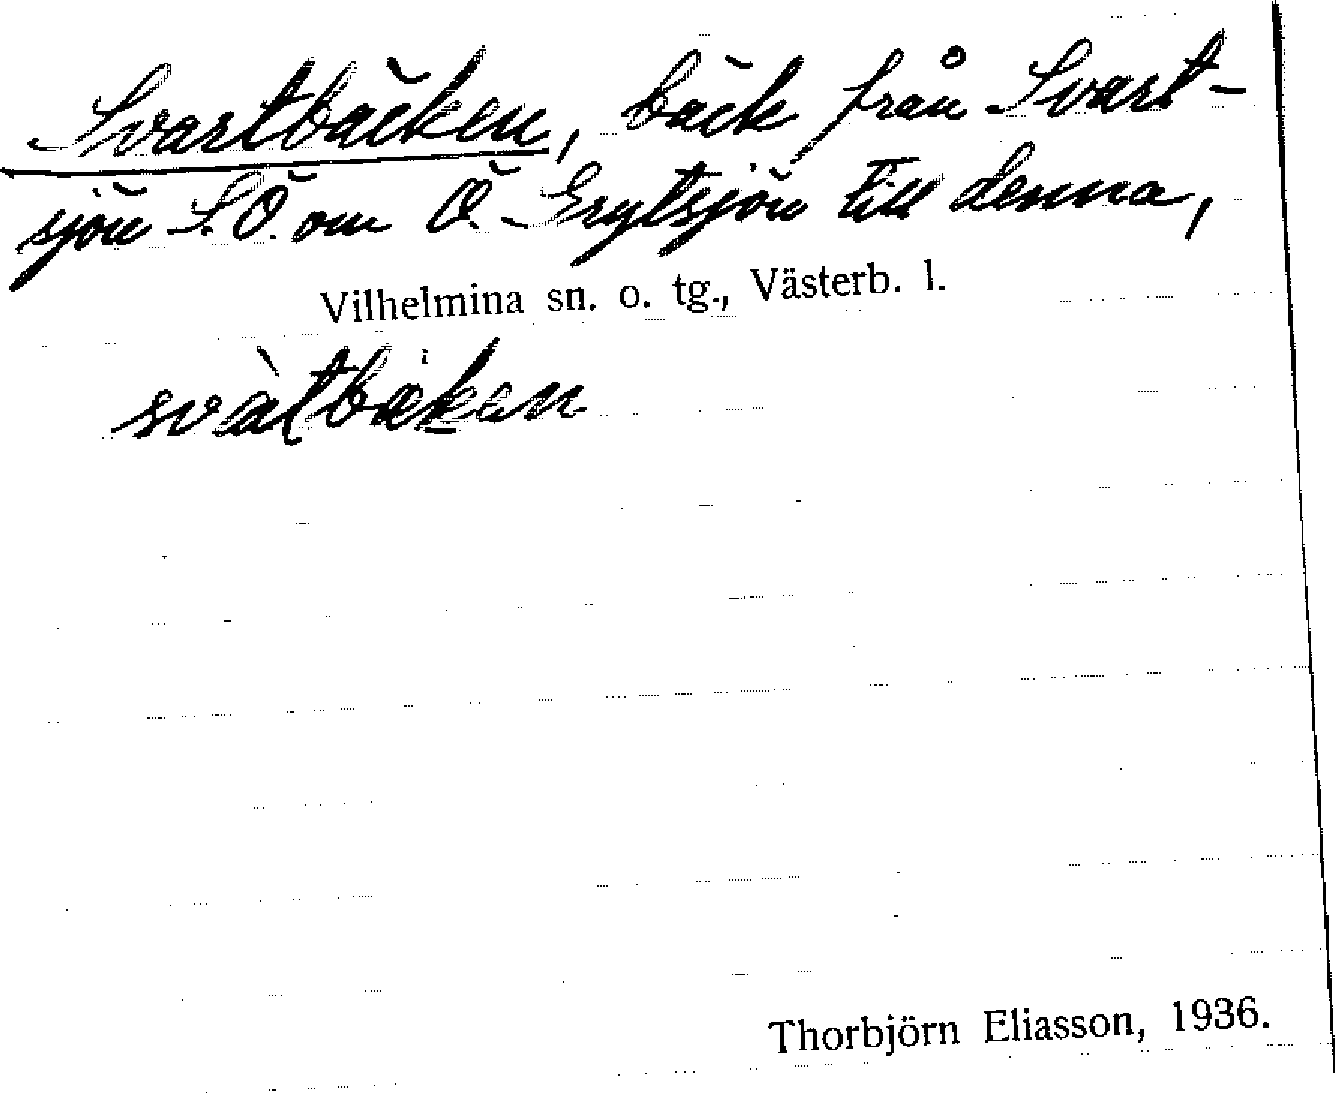 Svartbäcken, bäck från Svart-
sjön S.Ö. om Ö. Grytsjön till denna,
Vilhelmina sn. o. tg., Västerb. l.
svàtbækan
Thorbjörn Eliasson, 1936.